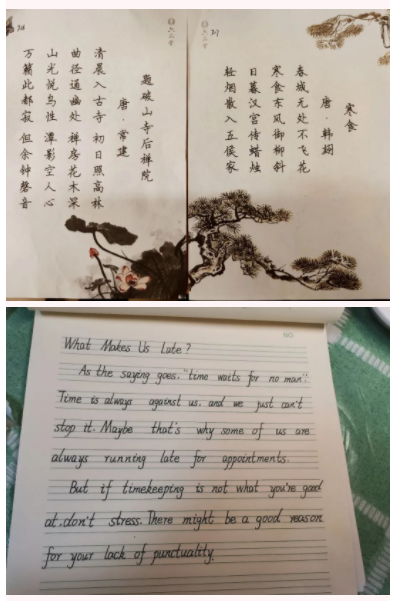 寒食
唐·韩翃
春城无处不飞花
寒食东风御柳斜
日暮汉宫传蜡烛
轻烟散入五侯家
题破山寺后禅院
唐·常建
清晨入古寺 初日照高林
曲径通幽处 禅房花木深
山光悦鸟性 潭影空人心
万籁此都寂 但余钟磬音
NO
What Makes Us Late?
As the saying goes, "time waits for no man".
Time is always against us, and we just can't
stop it. Maybe that's why some of us are
always running late for appointments.
But if timekeeping is not what you're good
at, don't stress. There might be a good reason
for your lack of punctuality.